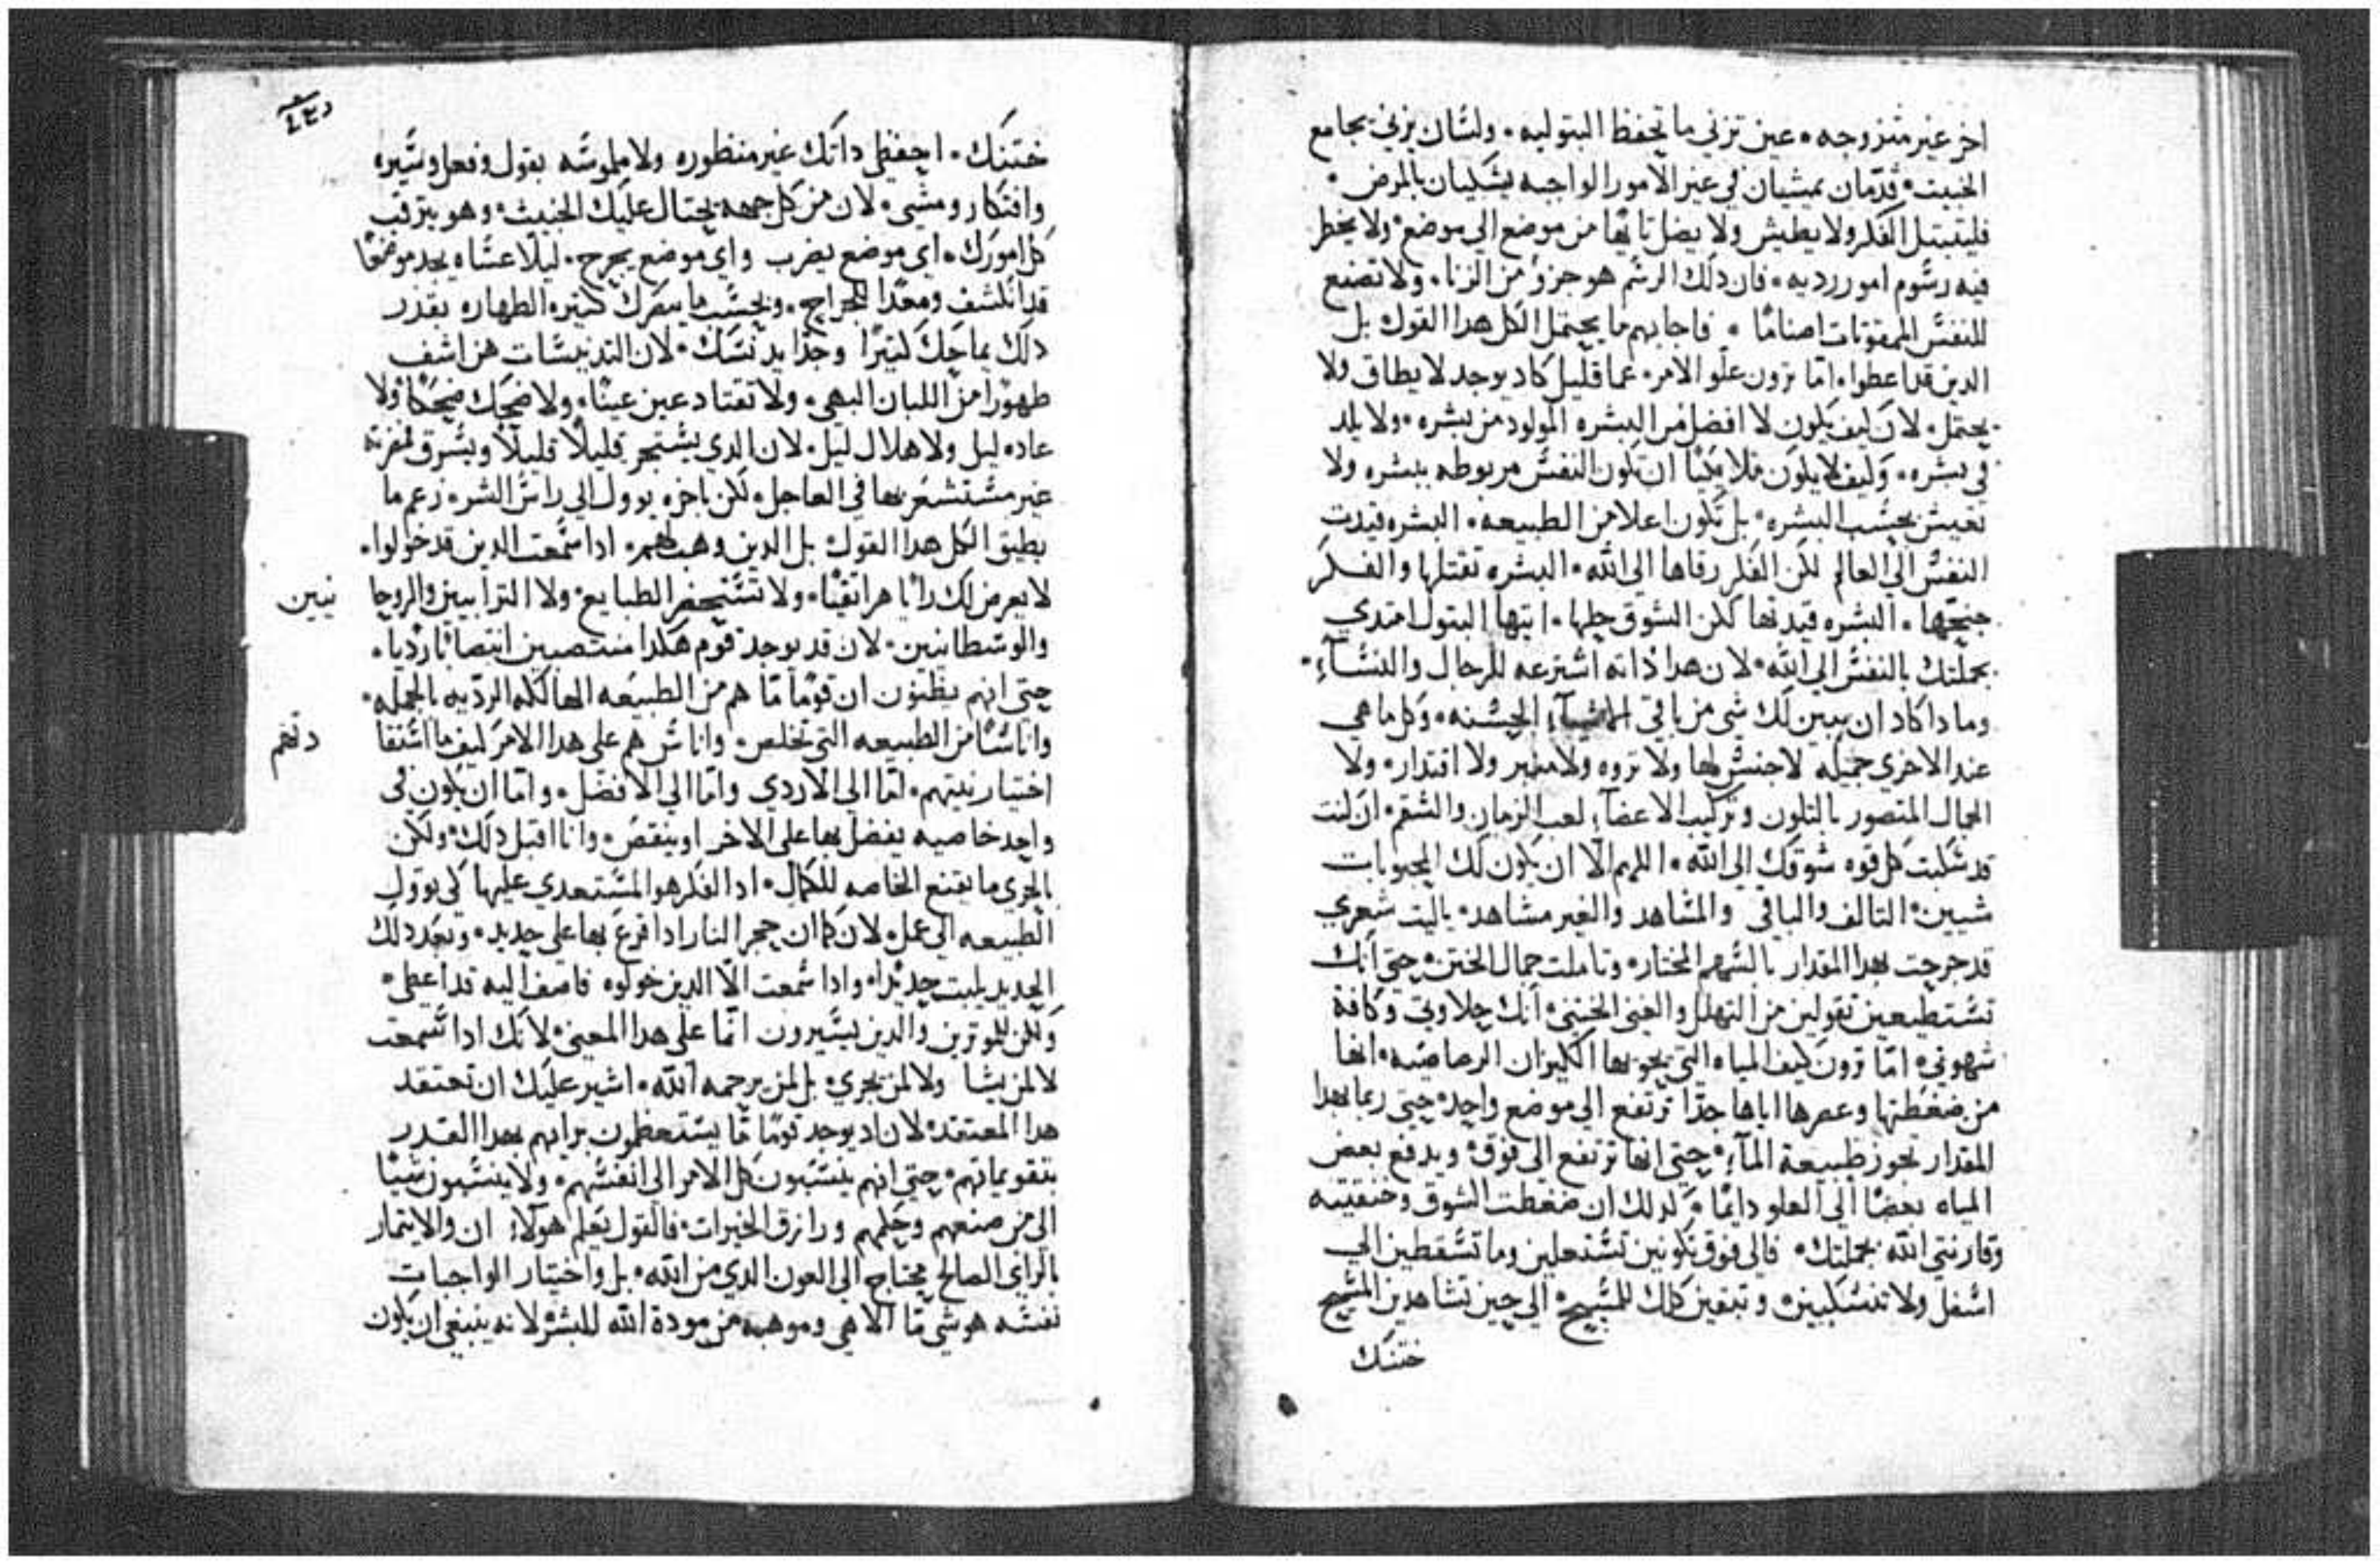 اخر غير متزوجه • عين تزني ما تحفظ البتوليه • ولسان يزني يجامع
الخبيت • قدمان يمشيان في غير الامور الواجبه يشكيان بالمرض •
فليتبتل الفكر ولا يطيش ولا يضل تايها من موضع الي موضع • ولا يخطر
فيه رسوم امور رديه • فان دلك الرسم هو جزو من الزنا • ولا تصنع
للنفس الممقوتات اصناما • فاجابهم ما يحتمل الكل هدا القول بل
الدين قد اعطوا • اما ترون علو الامر • عما قليل كاد يوجد لا يطاق ولا
يحتمل • لان كيف يكون لا افضل من البشره المولود من بشره • ولا يلد
في بشره • وكيف لا يكون ملاكيا ان تكون النفس مربوطه ببشره ولا
تعيش بحسب البشره • بل تكون اعلا من الطبيعه • البشره قيدت
النفس الي العالم لكن الفكر رقاها الي الله • البشره تقتلها والفكر
جنحها • البشره قيدتها لكن الشوق حلها • ايتها البتول امتدي
بجملتك بالنفس الي الله • لان هدا داته اشترعه للرجال والنسآء •
وما دا كاد ان يبين لك شي من باقي الاشيآء الحسنه • وكل ما هي
عند الاخري جميله لا جنس لها ولا تروه ولا منبر ولا اقتدار • ولا
الجمال المتصور بالتلون وتركيب الاعضآء لعب الزمان والسقم • ان كنت
قد سكبت كل قوه شوقك الي الله • اللهم الا ان يكون لك المحبوبات
شيين • التالف والباقي والمشاهد والغير مشاهد • ياليت شعري
قد جرحت بهدا المقدار بالسهم المختار • وتاملت جمال الختن • حتي انك
تستطيعين تقولين من التهلل والغني الختني • انك حلاوتي وكافة
شهوتي • اما ترون كيف المياه التي يحويها الكيزان الرصاصيه • انها
من ضغطتها وعصرها اياها جدا ترتفع الي موضع واحد • حتي ربما بهدا
المقدار تجوز طبيعة المآء • حتي انها ترتفع الي فوق • ويدفع بعض
المياه بعضا الي العلو دايما • كدلك ان ضغطت الشوق وخنقتيه
وقارنتي الله بجملتك • فالي فوق تكونين تشتعلين وما تسقطين الي
اسفل ولا تنسكبين • وتبقين كلك للمسيح • الي حين تشاهدين المسيح
ختنك
ختنك • احفظي داتك غير منظوره ولا ملموسه بقول وفعل وسيره
وافتكار ومشي • لان من كل جهه يحتال عليك الخبيث • وهو يترقب
كل امورك • اي موضع يضرب واي موضع يجرح • ليلا عساه يجد موضعا
قد انكشف ومعدا للجراح • وبحسب ما يبصرك كثيره الطهاره بقدر
دلك يماحك كثيرا وجدا يدنسك • لان التدنيسات هن اشف
طهورا من اللبان البهي • ولا تقتاد عين عينا • ولا ضحك ضحكا • ولا
عاده ليل ولا هلال ليل • لان الدي يستجر قليلا قليلا ويسرق لمضرته
غير مستشعر بها في العاجل • لكن باخره يوول الي راس الشر • زعم ما
يطيق الكل هدا القول بل الدين وهب لهم • ادا سمعت الدين قد خولوا •
لا يعرض لك رايا هراتقيا • ولا تستحضر الطبايع • ولا الترابيين والروحا
نيين
والوسطانيين • لان قد يوجد قوم هكدا منتصبين انتصابا رديا •
حتي انهم يظنون ان قوما ما هم من الطبيعه الهالكه الرديه بالجمله •
واناسا من الطبيعه التي تخلص • واناس هم علي هدا الامر كيف ما استقا
دتهم
اختيار نيتهم • اما الي الاردي واما الي الافضل • واما ان يكون في
واحد خاصيه يفضل بها علي الاخر او ينقص • وانا اقبل دلك • ولكن
بالحري ما يقنع الخاصه للكمال • اد الفكر هو المستعدي عليها كي توول
الطبيعه الي عمل • لان كما ان حجر النار ادا قرع بها علي حديد • وتجد دلك
الحديد يلبت حديدا • وادا سمعت الا الدين خولوه فاضف اليه قد اعطي •
ولكن للموترين والدين يسيرون انما علي هدا المعني • لانك ادا سمعت
لا لمن يشا ولا لمن يجري • بل لمن يرحمه الله • اشير عليك ان تعتقد
هدا المعتقد • لان اد يوجد قوما ما يستعظمون برايهم بهدا القدر
بتقويماتهم • حتي انهم ينسبون كل الامر الي انفسهم • ولا ينسبون شيا
الي من صنعهم وحكمهم ورازق الخيرات • فالقول يعلم هولاء ان والايتمار
بالراي الصالح يحتاج الي العون الدي من الله • بل واختيار الواجبات
نفسه هو شي ما الاهي وموهبه من مودة الله للبشر • لانه ينبغي ان يكون